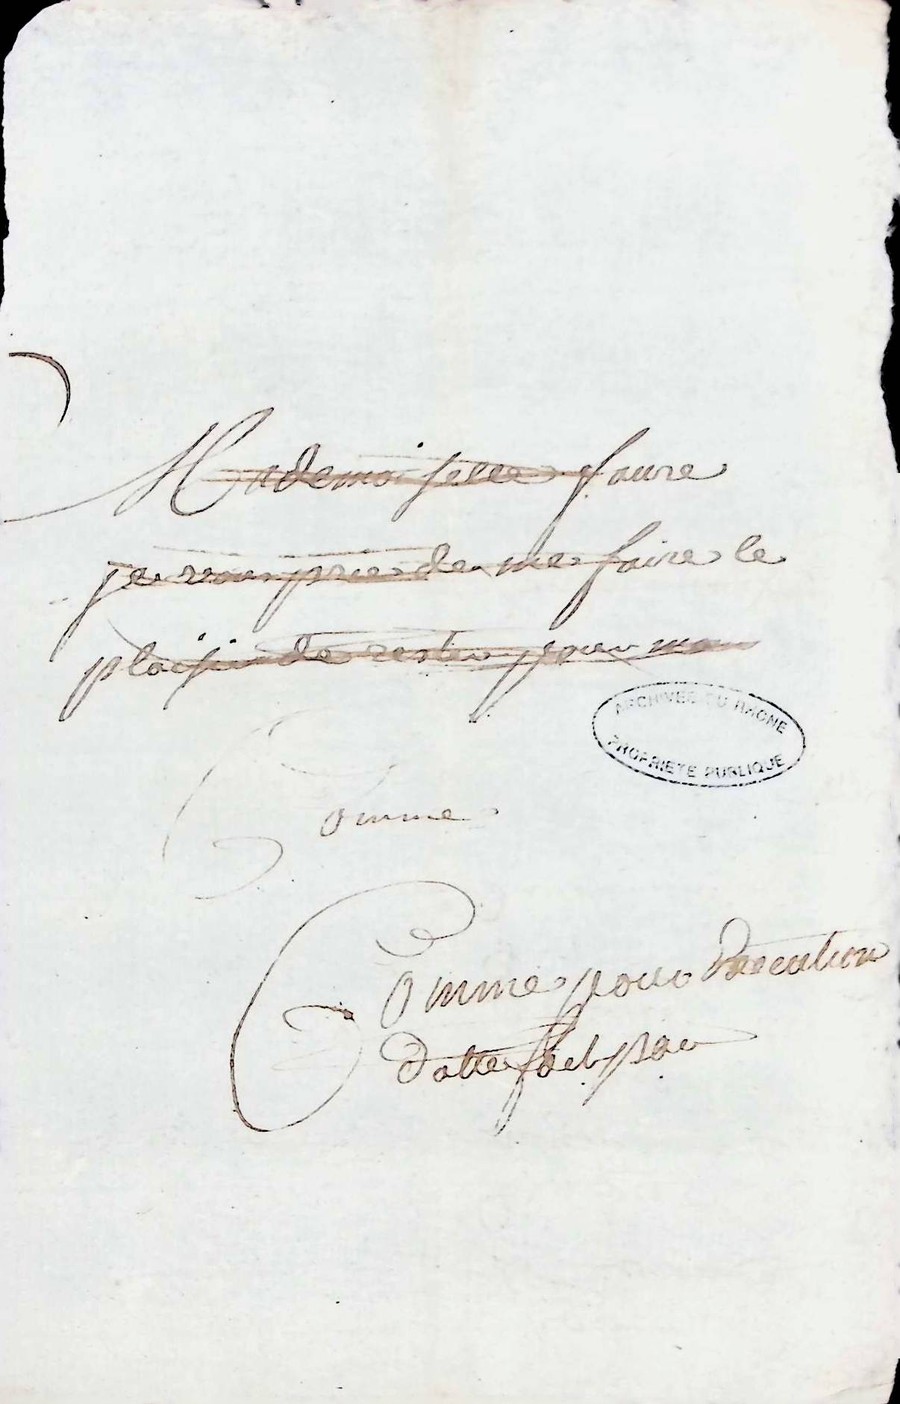 Mademoiselle faure
je vous prie de me faire le
plaisir de rester pour mo
ARCHIVES DU RHONE
PROPRIETE PUBLIQUE
Comme
Comme pour
datte fait par